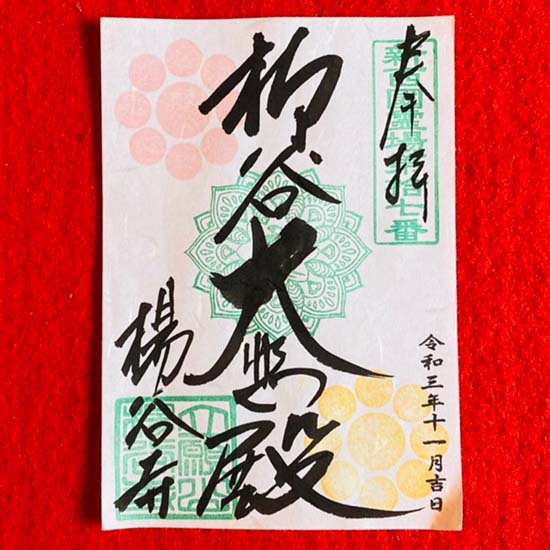 奉拝
新西国霊場七番
柳谷大悲殿
楊谷寺
令和三年十一月吉日